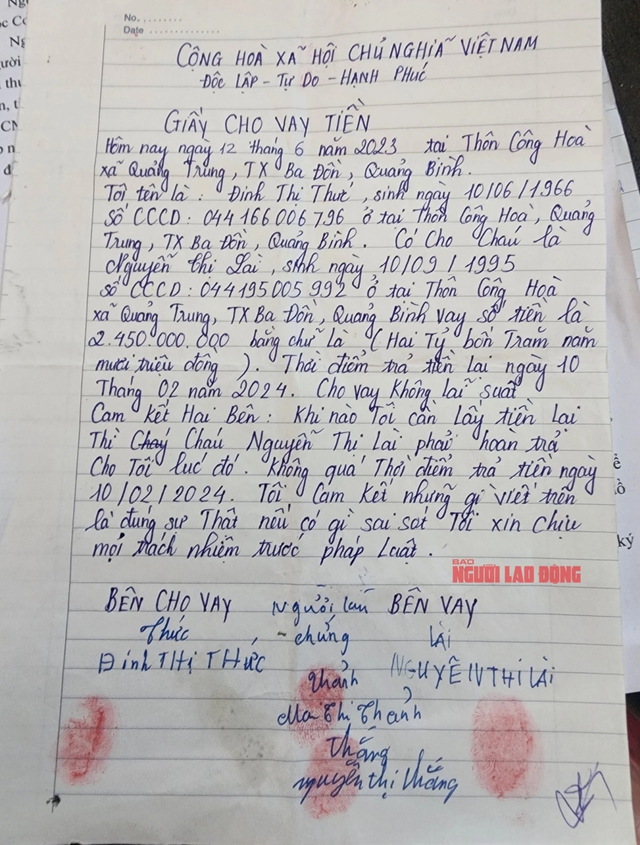 No. ............
Date ............
CỘNG HOÀ XÃ HỘI CHỦ NGHIÃ VIỆT NAM
ĐỘC LẬP - TỰ DO - HẠNH PHÚC
GIẤY CHO VAY TIỀN
Hôm nay ngày 12 tháng 6 năm 2023 tại Thôn Công Hoà
xã Quảng Trung, TX Ba Đồn, Quảng Bình.
Tôi tên là : Đinh Thị Thức, sinh ngày 10/06/1966
Số CCCD : 044166006796 ở tại Thôn Công Hoà, Quảng
Trung, TX Ba Đồn, Quảng Bình. Có Cho Cháu là
Nguyễn Thị Lài, sinh ngày 10/09/1995
số CCCD : 044195005992 ở tại Thôn Công Hoà
xã Quảng Trung, TX Ba Đồn, Quảng Bình vay số tiền là
2.450.000.000 bằng chữ là (Hai Tỷ bốn Trăm năm
mươi triệu đồng). Thời điểm trả tiền lại ngày 10
Tháng 02 năm 2024. Cho vay Không lãi suất
Cam kết Hai Bên : Khi nào Tôi cần Lấy tiền Lại
Thì Cháu Nguyễn Thị Lài phải hoàn trả
Cho Tôi lúc đó. Không quá Thời điểm trả tiền ngày
10/02/2024. Tôi Cam Kết những gì viết trên
là đúng sự Thật nếu có gì sai sót Tôi xin chịu
mọi trách nhiệm trước pháp Luật.
BÁO
NGƯỜI LAO ĐỘNG
BÊN CHO VAY Người làm BÊN VAY
Thức chứng LÀI
ĐINH THỊ THỨC NGUYỄN THỊ LÀI
Thảnh
Ma Thị Thảnh
Thắng
Nguyễn Thị Thắng